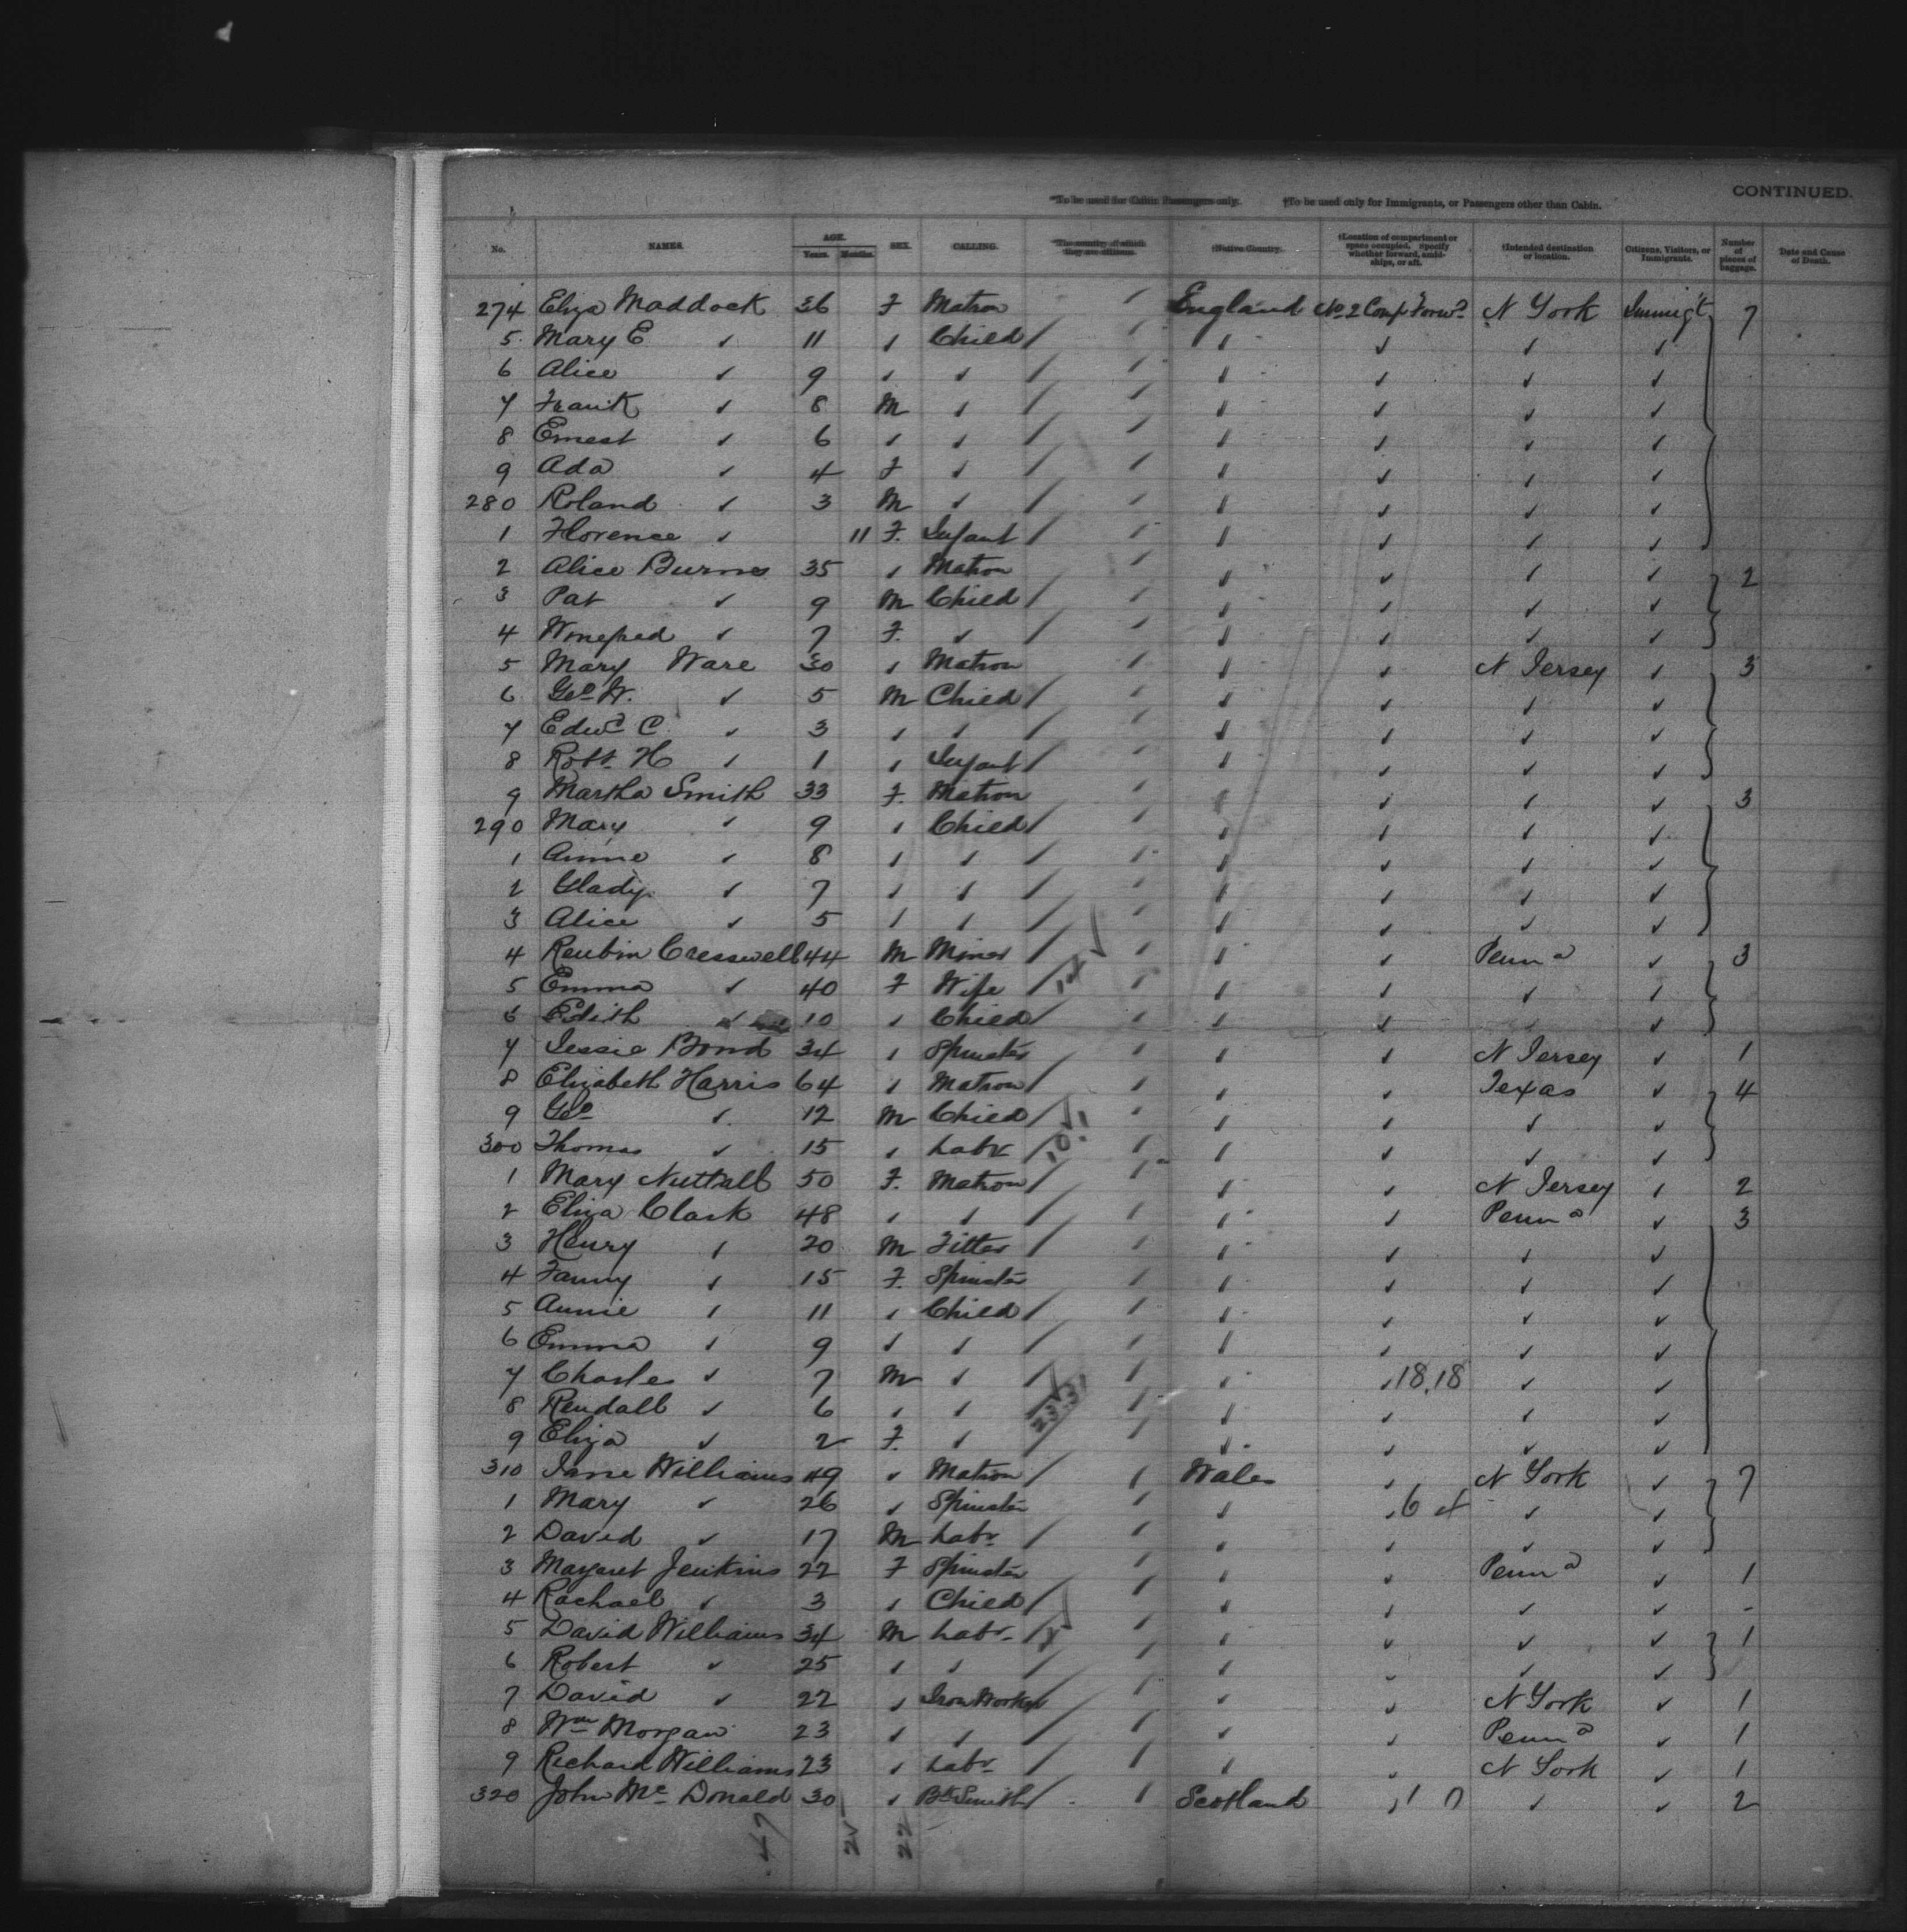 CONTINUED.
*To be used for Cabin Passengers only. †To be used only for Immigrants, or Passengers other than Cabin.
No. NAMES. AGE. Years. Months. SEX. CALLING. *The country of which they are citizens. †Native Country. †Location of compartment or space occupied. Specify whether forward, amidships, or aft. †Intended destination or location. Citizens, Visitors, or Immigrants. Number of pieces of baggage. Date and Cause of Death.
274 Eliza Maddock 36 F Matron England No 2 Comp Forwd N York Immigt 7
5 Mary E ✓ 11 ✓ Child ✓ ✓ ✓ ✓
6 Alice ✓ 9 ✓ ✓ ✓ ✓ ✓ ✓
7 Frank ✓ 8 M ✓ ✓ ✓ ✓ ✓
8 Ernest ✓ 6 ✓ ✓ ✓ ✓ ✓ ✓
9 Ada ✓ 4 F ✓ ✓ ✓ ✓ ✓
280 Roland ✓ 3 M ✓ ✓ ✓ ✓ ✓
1 Florence ✓ 11 F. Infant ✓ ✓ ✓ ✓
2 Alice Burns 35 ✓ Matron ✓ ✓ ✓ ✓ 2
3 Pat ✓ 9 M Child ✓ ✓ ✓ ✓
4 Winefred ✓ 7 F. ✓ ✓ ✓ ✓ ✓
5 Mary Ware 30 ✓ Matron ✓ ✓ N Jersey ✓ 3
6 Geo W. ✓ 5 M Child ✓ ✓ ✓ ✓
7 Edwd C ✓ 3 ✓ ✓ ✓ ✓ ✓ ✓
8 Robt H ✓ 1 ✓ Infant ✓ ✓ ✓ ✓
9 Martha Smith 33 F. Matron ✓ ✓ ✓ ✓ 3
290 Mary ✓ 9 ✓ Child ✓ ✓ ✓ ✓
1 Annie ✓ 8 ✓ ✓ ✓ ✓ ✓ ✓
2 Gladys ✓ 7 ✓ ✓ ✓ ✓ ✓ ✓
3 Alice ✓ 5 ✓ ✓ ✓ ✓ ✓ ✓
4 Reubin Cresswell 44 M Miner ✓ ✓ Penna ✓ 3
5 Emma ✓ 40 F Wife ✓ ✓ ✓ ✓
6 Edith ✓ 10 ✓ Child ✓ ✓ ✓ ✓
7 Jessie Bond 34 ✓ Spinster ✓ ✓ N Jersey ✓ 1
8 Elizabeth Harris 64 ✓ Matron ✓ ✓ Texas ✓ 4
9 Geo ✓ 12 M Child ✓ ✓ ✓ ✓
300 Thomas ✓ 15 ✓ Labr ✓ ✓ ✓ ✓
1 Mary Nuttall 50 F. Matron ✓ ✓ N Jersey ✓ 2
2 Eliza Clark 48 ✓ ✓ ✓ ✓ Penna ✓ 3
3 Henry ✓ 20 M Fitter ✓ ✓ ✓ ✓
4 Fanny ✓ 15 F. Spinster ✓ ✓ ✓ ✓
5 Annie ✓ 11 ✓ Child ✓ ✓ ✓ ✓
6 Emma ✓ 9 ✓ ✓ ✓ ✓ ✓ ✓
7 Charles ✓ 7 M ✓ ✓ ✓ 18,18 ✓ ✓
8 Rendall ✓ 6 ✓ ✓ 23.31 ✓ ✓ ✓ ✓
9 Eliza ✓ 2 F. ✓ ✓ ✓ ✓ ✓
310 Jane Williams 49 ✓ Matron Wales ✓ N York ✓ 7
1 Mary ✓ 26 ✓ Spinster ✓ ✓ 6 ✓ ✓
2 David ✓ 17 M Labr ✓ ✓ ✓ ✓
3 Margaret Jenkins 22 F Spinster ✓ ✓ Penna ✓ 1
4 Rachael ✓ 3 ✓ Child ✓ ✓ ✓ ✓ -
5 David Williams 34 M Labr ✓ ✓ ✓ ✓ 1
6 Robert ✓ 25 ✓ ✓ ✓ ✓ ✓ ✓
7 David ✓ 22 ✓ Iron Worker ✓ ✓ N York ✓ 1
8 Wm Morgan 23 ✓ ✓ ✓ ✓ Penna ✓ 1
9 Richard Williams 23 ✓ Labr ✓ ✓ N York ✓ 1
320 John Mc Donald 30 ✓ Bk Smith Scotland ✓ 1 0 ✓ ✓ 2
47 25 22